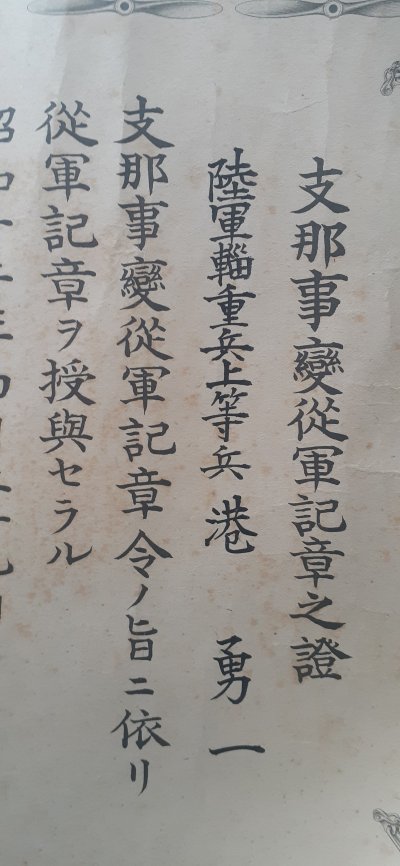 支那事變從軍記章之證
陸軍輜重兵上等兵 港 勇一
支那事變從軍記章令ノ旨ニ依リ
從軍記章ヲ授與セラル